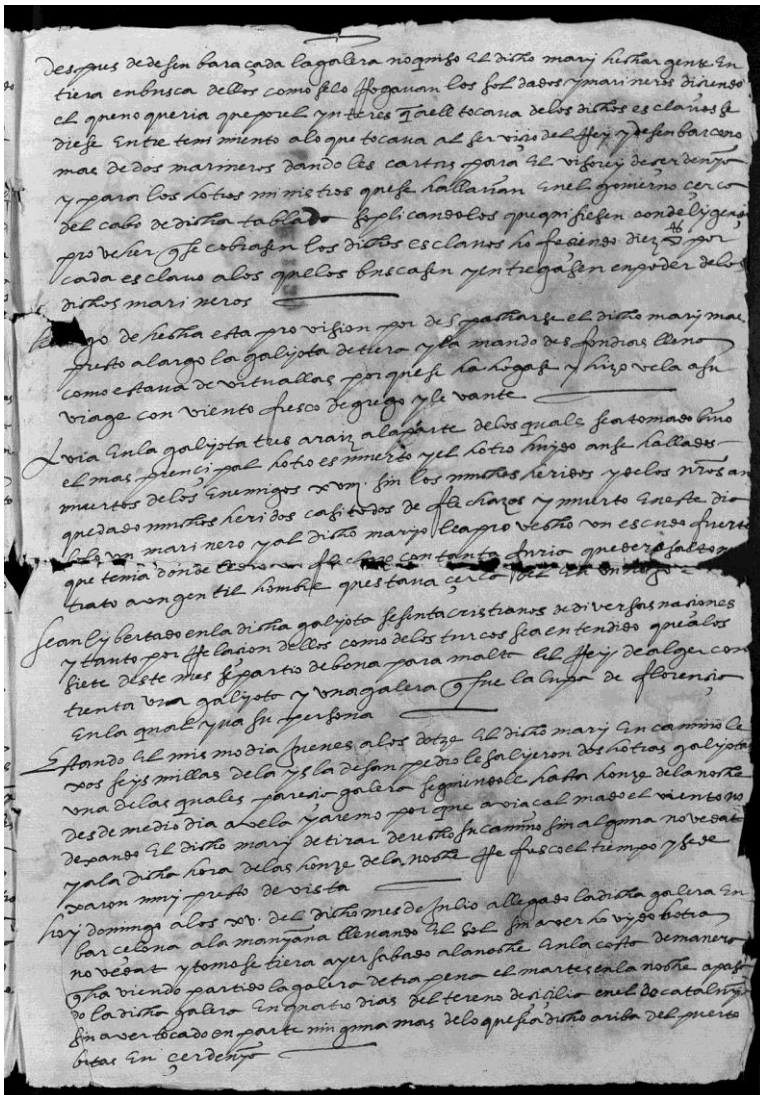 despues de desenbaraçada la galera no quiso El dicho marj hechar gente En
tiera en busca dellos como se lo Rogauan los soldados y marineros diziendo
el que no queria que por el ynteres q̄ a ell tocaua de los dichos esclauos se
diese Entretenimiento a lo que tocaua al seruicio del Rey y desenbarco no
mas de dos marineros dando les cartas para El visorej de çerdenya
y para los hotros ministros que se hallarian En el gouierno çerca
del cabo de dicha tablada suplicandolos que quisiesen con deligençia
proveher q̄ se cobrasen los dichos esclauos hofreçiendo diez por
cada esclauo a los que los buscasen y entregasen en poder de los
dichos marineros
de hecha esta provision por despacharse el dicho marj mas
presto alargo la galjota de tiera y la mando desfondias lleno
como estaua de vituallas porque se hahogase y hizo vela a su
viage con viento fresco de grego y levante
Avia En la galjota tres araiz a la parte de los quales sea tomado biuo
el mas prencipal hotro es muerto y el hotro huydo anse hallados
muertos de los Enemigos xviij sin los muchos heridos y de los nr̄os an
quedado muchos heridos casi todos de flechazos y muerto En este dia
un marinero y al dicho marjo le aprovecho un escudo fuerte
que tenia donde un flechazo con tanta furia que de resalto
trato a un gentil hombre questaua çerca del En
sean lybertado en la dicha galjota sesenta cristianos de diversas nasiones
y tanto por Relacion dellos como de los turcos sea entendido que a los
siete deste mes se partio de bona para malta El Rey de alger con
trenta una galjota y una galera q̄ fue la lupa de florençia
En la qual yua su persona
Estando El mismo dia Jueues a los dotze El dicho marj En camino le
xos seys millas de la ysla de san pedro le salyeron dos hotras galjotas
una de las quales parecia galera seguiendole hasta honze de la noche
desde medio dia a vela y a remo por que avia calmado el viento no
dexando El dicho marj de tirar derecho su camino sin alguna novedat
y a la dicha hora de las honze de la noche Refresco el tiempo y se de
xaron muy presto de vista
hoy domingo a los xv. del dicho mes de Julio allegado la dicha galera En
barcelona a la manyana lleuando El sol sin aver hovydo hotra
novedat y tomose tiera ayer sabado a la noche En la costa de manera
q̄ haviendo partido la galera de trapena el martes en la noche a pasa
do la dicha galera En quatro dias del tereno de sicilia en el de catalunya
sin aver tocado en parte ninguna mas de lo que sea dicho ariba del puerto
botas En çerdenya